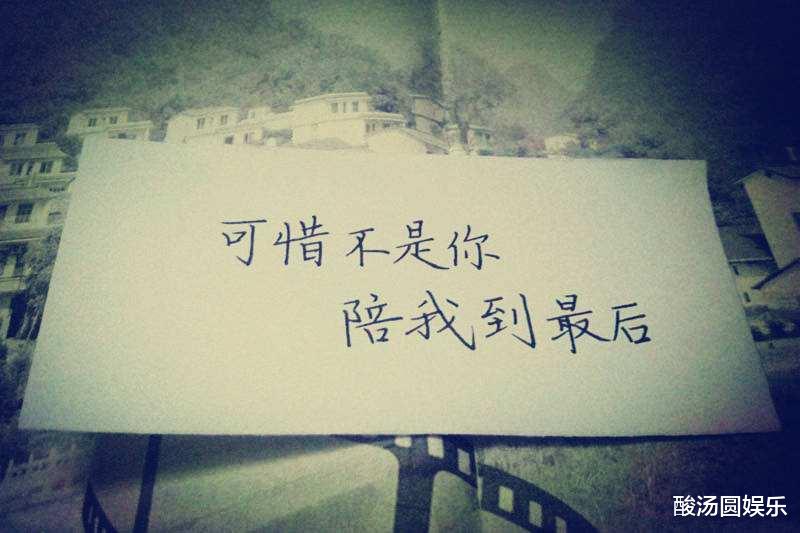 可惜不是你
陪我到最后
酸汤圆娱乐